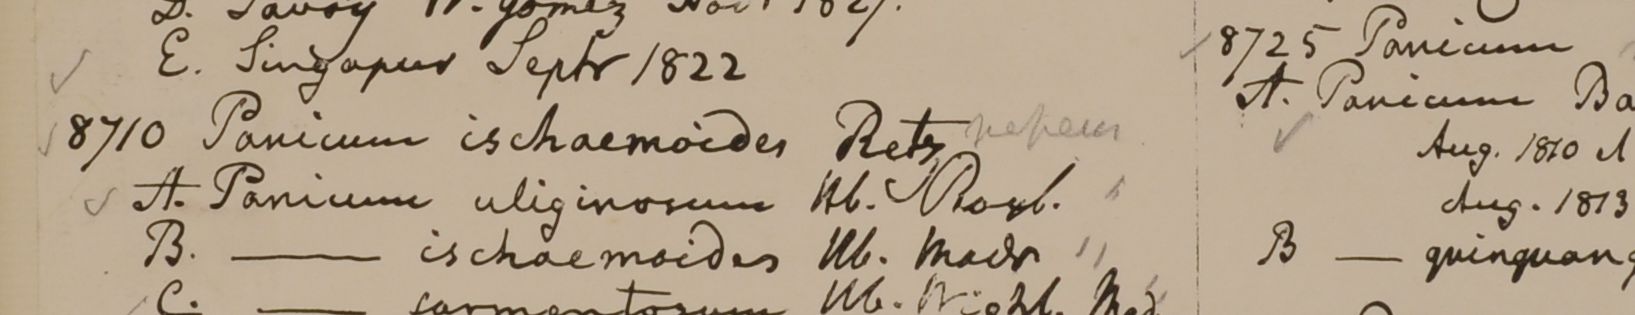 D. Tavoy W. Gomez Nov. 1827.
E. Singapur Septr 1822
8710 Panicum ischaemoides Retz repens
A. Panicum uliginosum Hb. Roxb. "
B. —— ischaemoides Hb. Madr "
C. —— sarmentosum Hb. Wight. Mad
8725 Panicum
A. Panicum Ba
Aug. 1810
Aug. 1813
B — quinquang